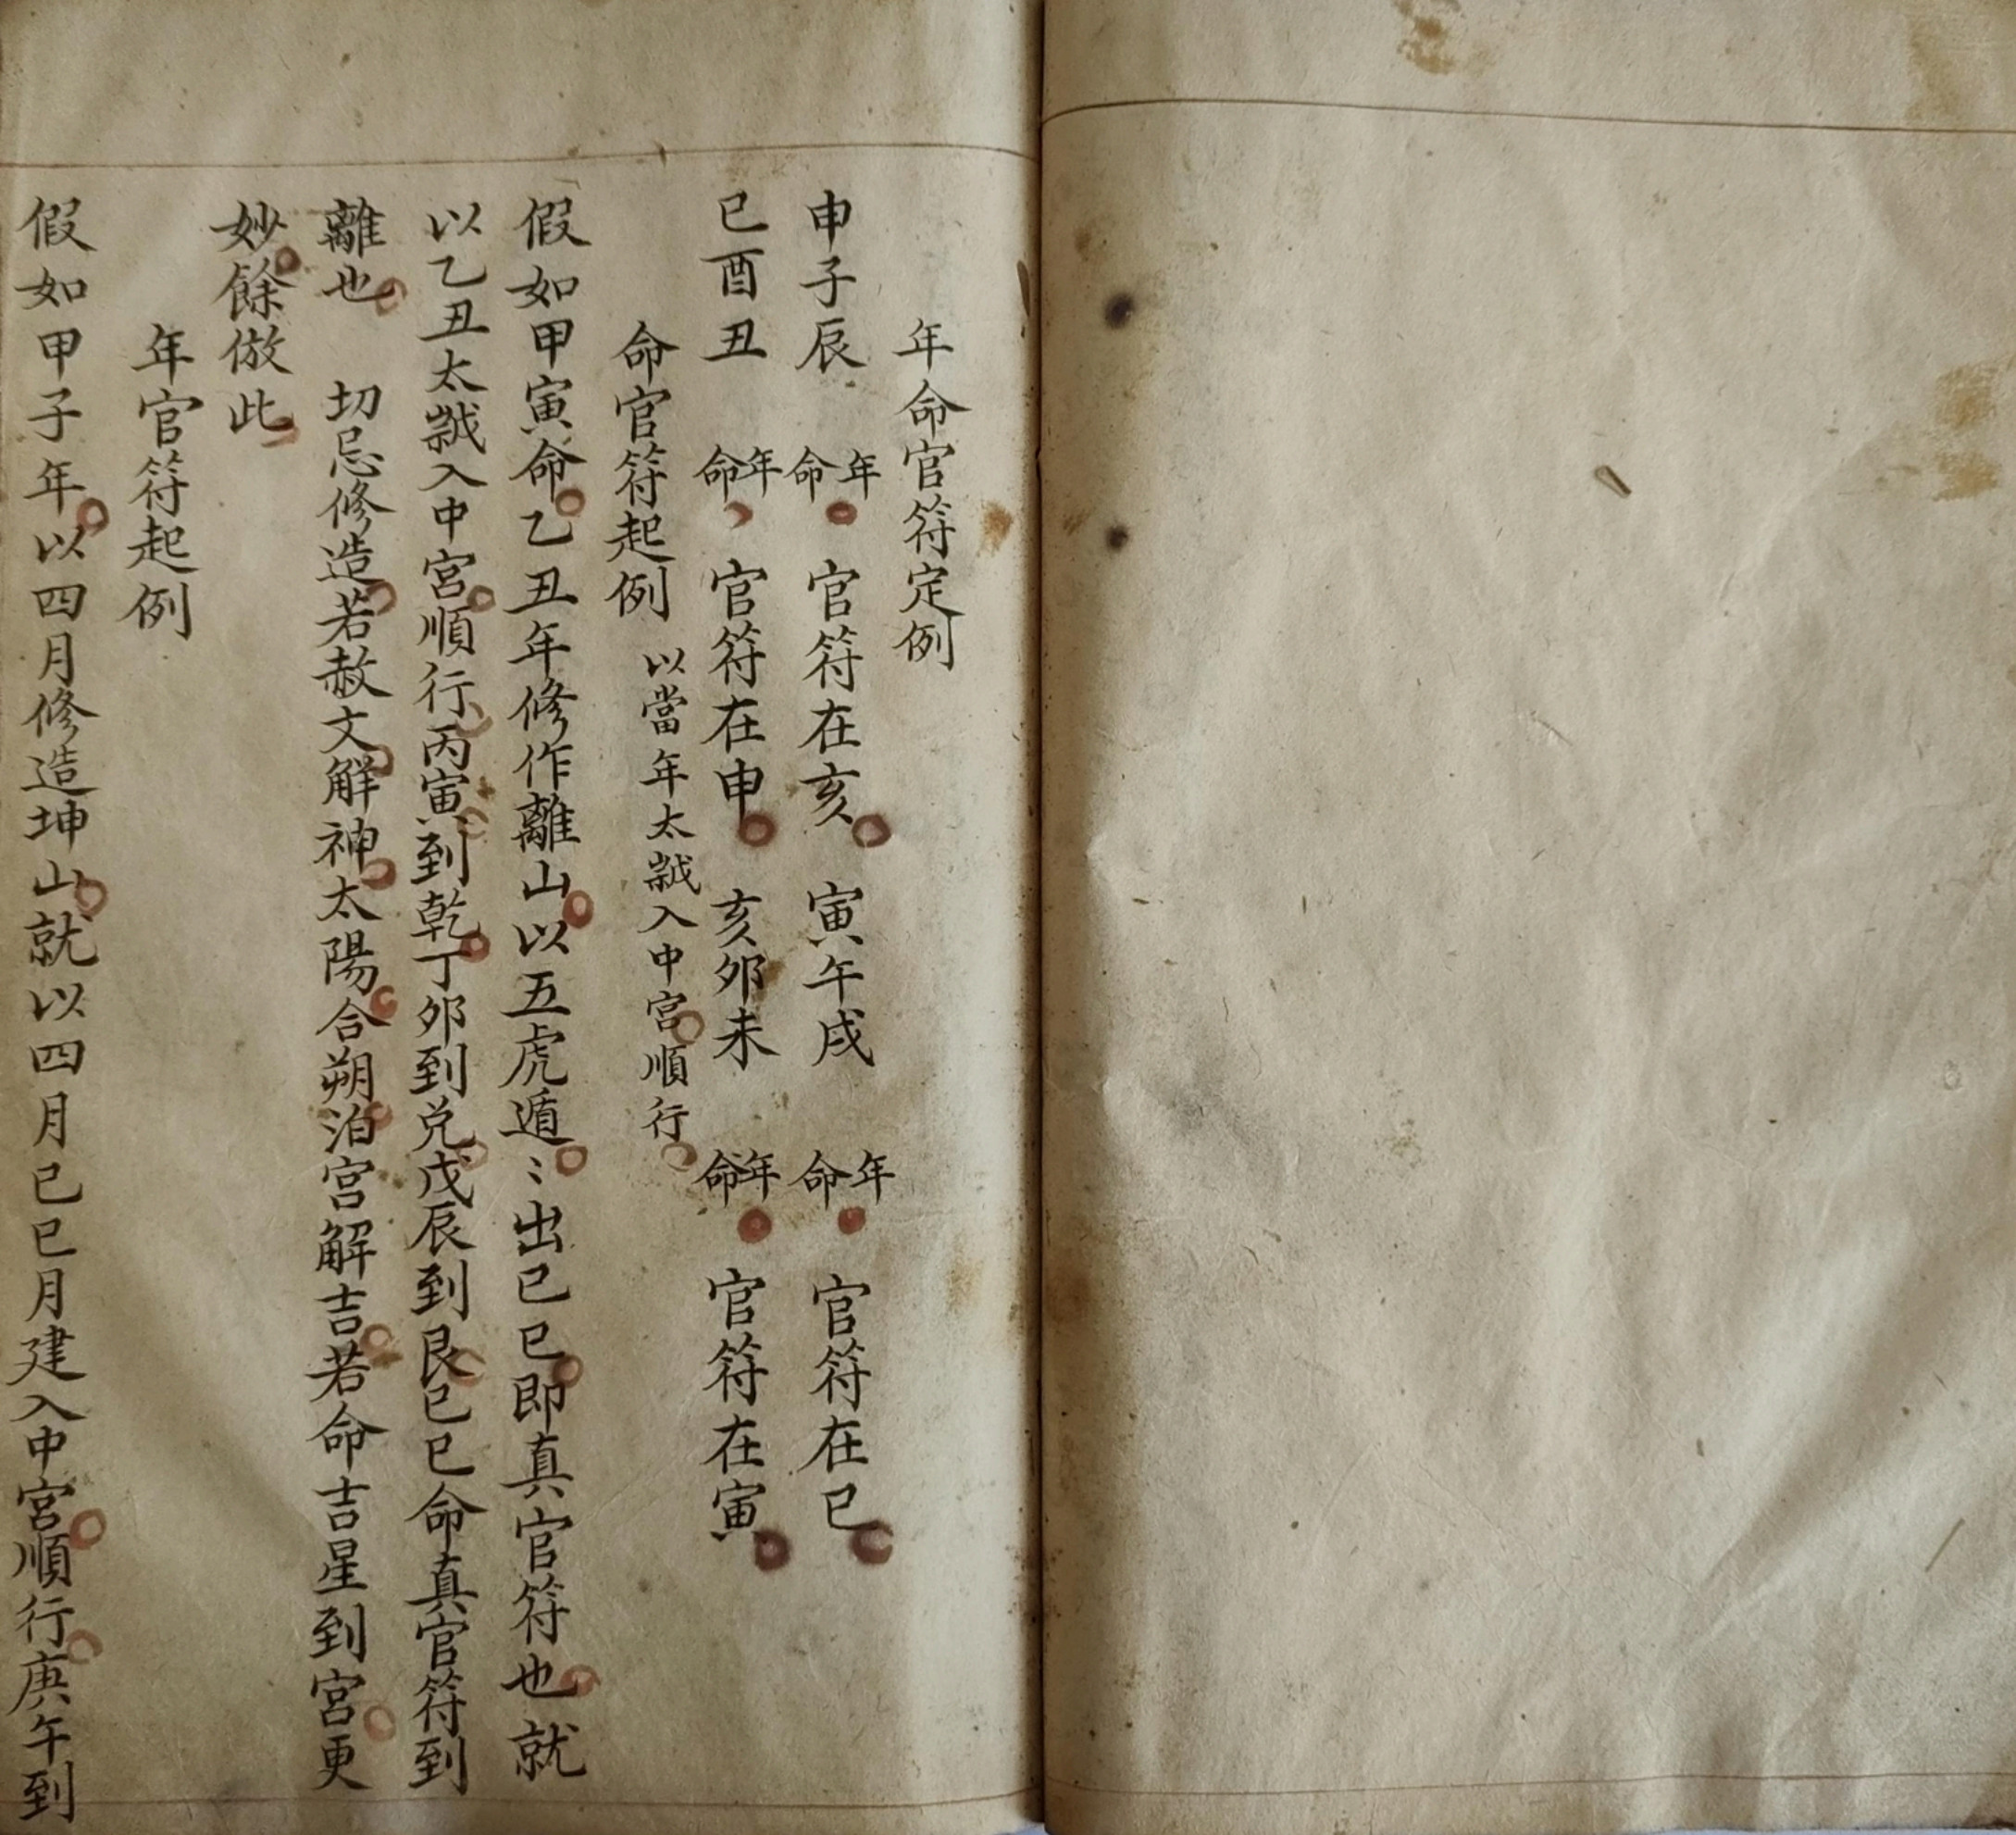 年命官符定例
申子辰 年命 官符在亥 寅午戌 年命 官符在巳
巳酉丑 年命 官符在申 亥夘未 年命 官符在寅
命官符起例 以當年太歲入中宮順行
假如甲寅命乙丑年修作離山以五虎遁〻出己巳即真官符也就
以乙丑太歲入中宮順行丙寅到乾丁夘到兌戊辰到艮己巳命真官符到
離也 切忌修造若赦文解神太陽合朔泊宮解吉若命吉星到宮更
妙餘倣此
年官符起例
假如甲子年以四月修造坤山就以四月己巳月建入中宮順行庚午到